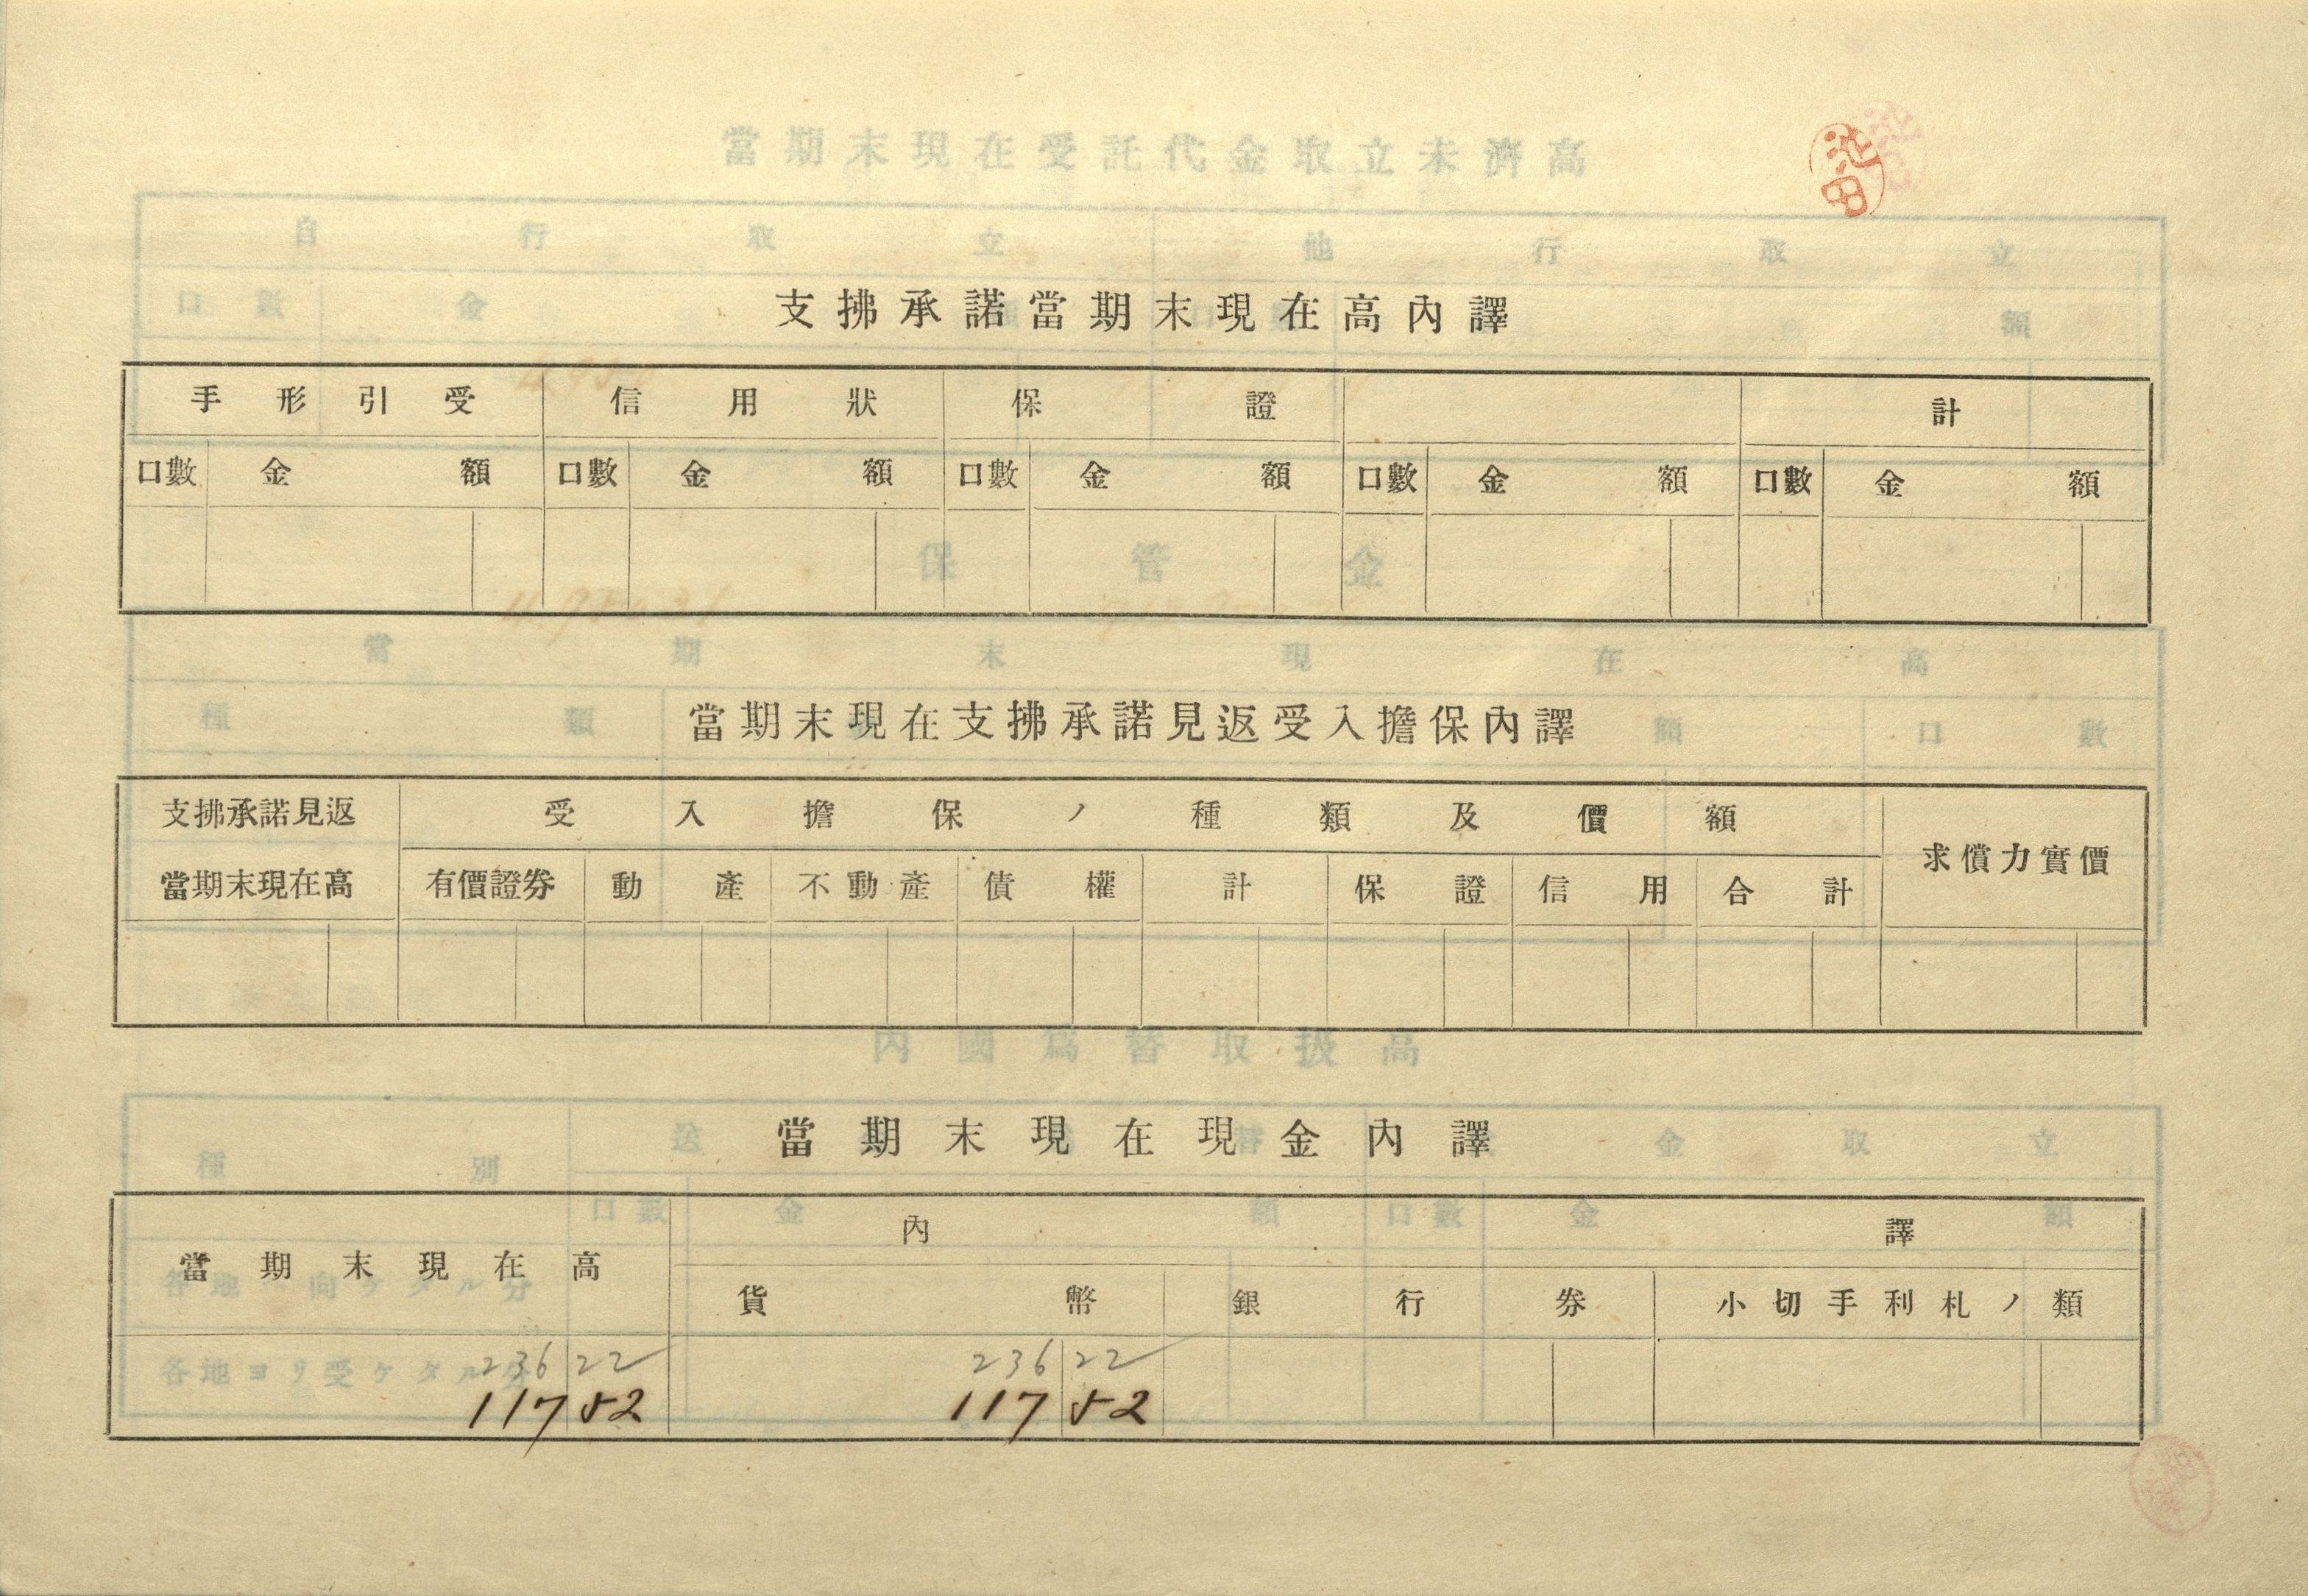 池田
支拂承諾當期末現在高內譯
手形引受 信用狀 保證 計
口數 金額 口數 金額 口數 金額 口數 金額 口數 金額
當期末現在支拂承諾見返受入擔保內譯
支拂承諾見返 受入擔保ノ種類及價額 求償力實價
當期末現在高 有價證券 動產 不動產 債權 計 保證 信用 合計
當期末現在現金內譯
當期末現在高 內譯
貨幣 銀行券 小切手利札ノ類
236 22 236 22
117 52 117 52